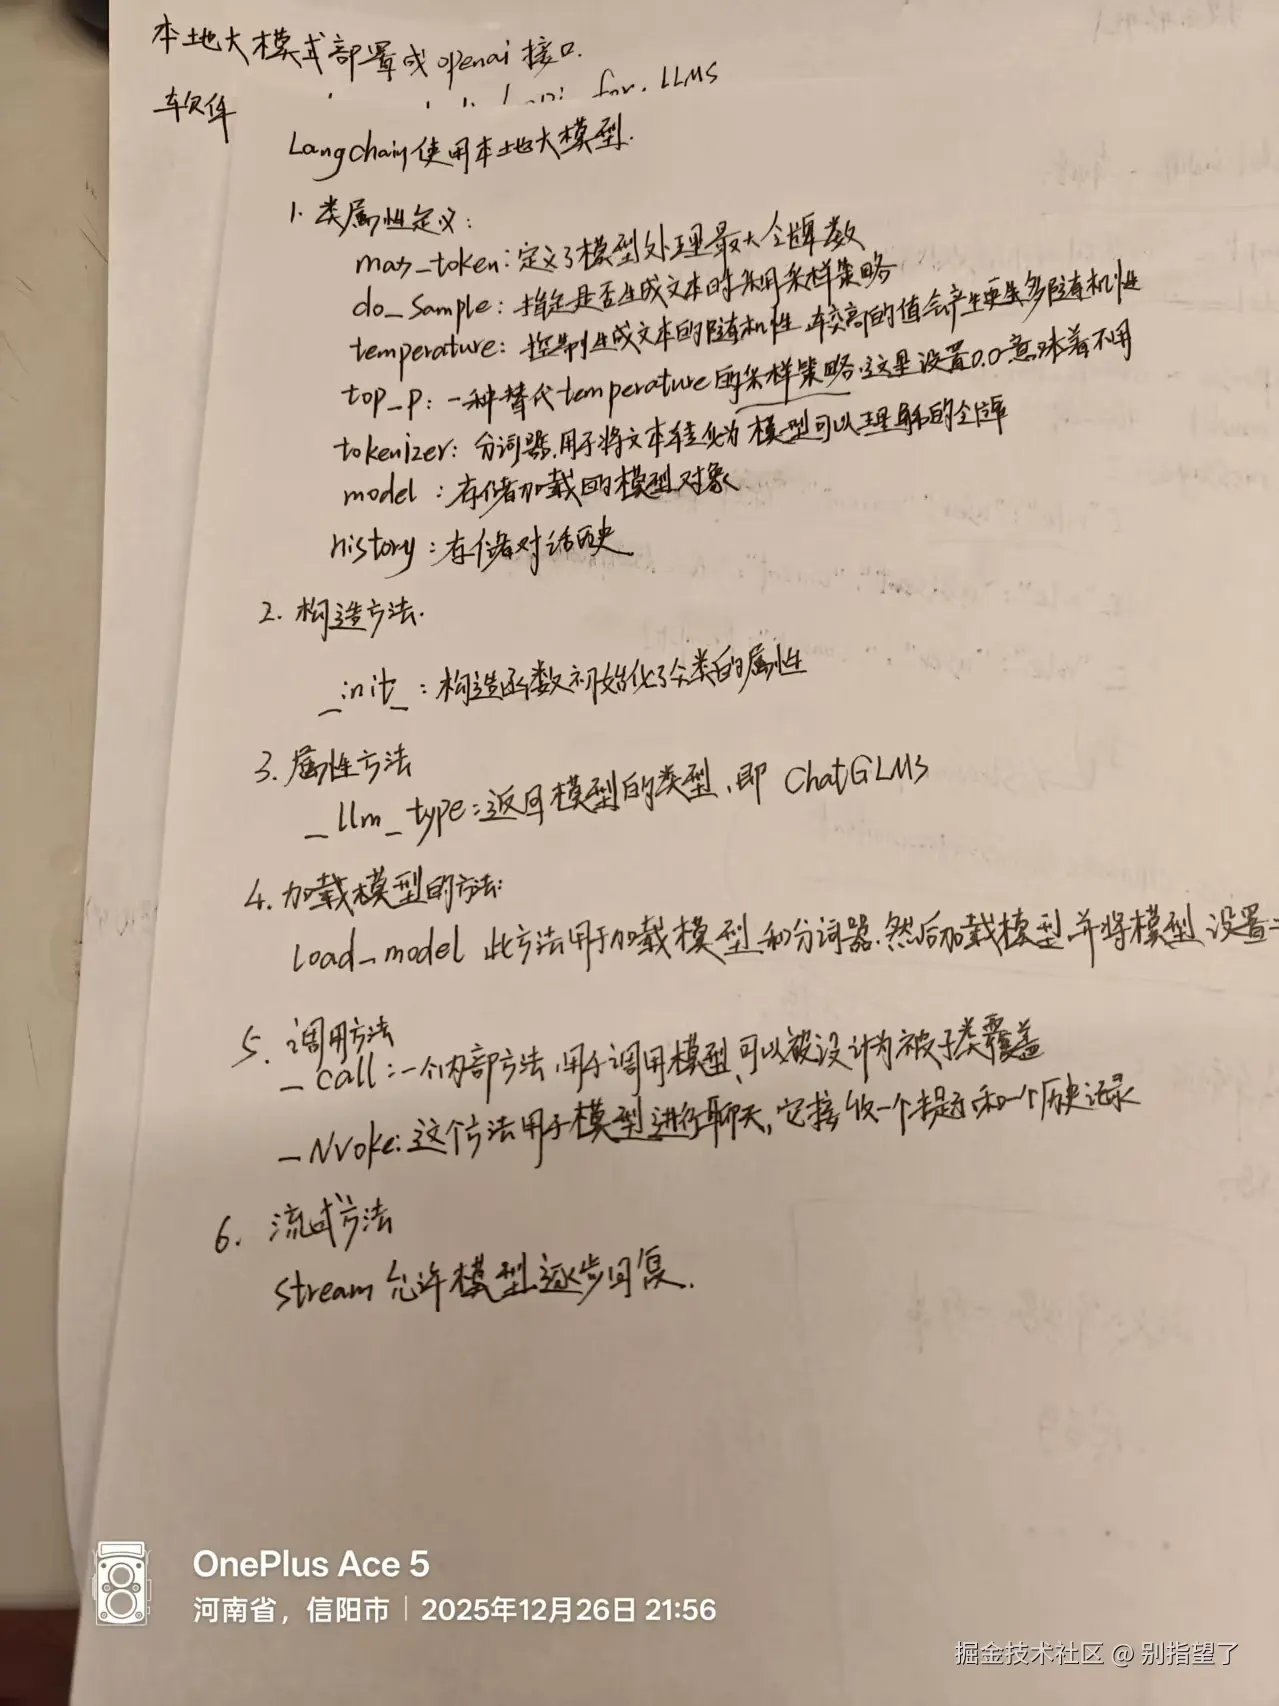 本地大模式部署成openai接口.
软件 for. LLMS
Langchain使用本地大模型.
1. 类属性定义:
max_token:定义了模型处理最大令牌数
do_sample:指定是否生成文本时采用采样策略
temperature:控制生成文本的随机性 较高的值会产生更多随机性
top_p:一种替代temperature的采样策略.这里设置0.0意味着不用
tokenizer:分词器,用于将文本转化为模型可以理解的令牌
model:存储加载的模型对象
history:存储对话历史
2. 构造方法.
_init_:构造函数初始化了个类的属性
3. 属性方法
_llm_type:返回模型的类型,即 ChatGLM3
4. 加载模型的方法:
load_model 此方法用于加载模型和分词器.然后加载模型,并将模型设置
5. 调用方法
_call:一个内部方法,用于调用模型,可以被设计为被子类覆盖
_Nvoke:这个方法用于模型进行聊天,它接收一个提示和一个历史记录
6. 流式方法
stream 允许模型逐步回复.
OnePlus Ace 5
河南省，信阳市 | 2025年12月26日 21:56
掘金技术社区 @ 别指望了